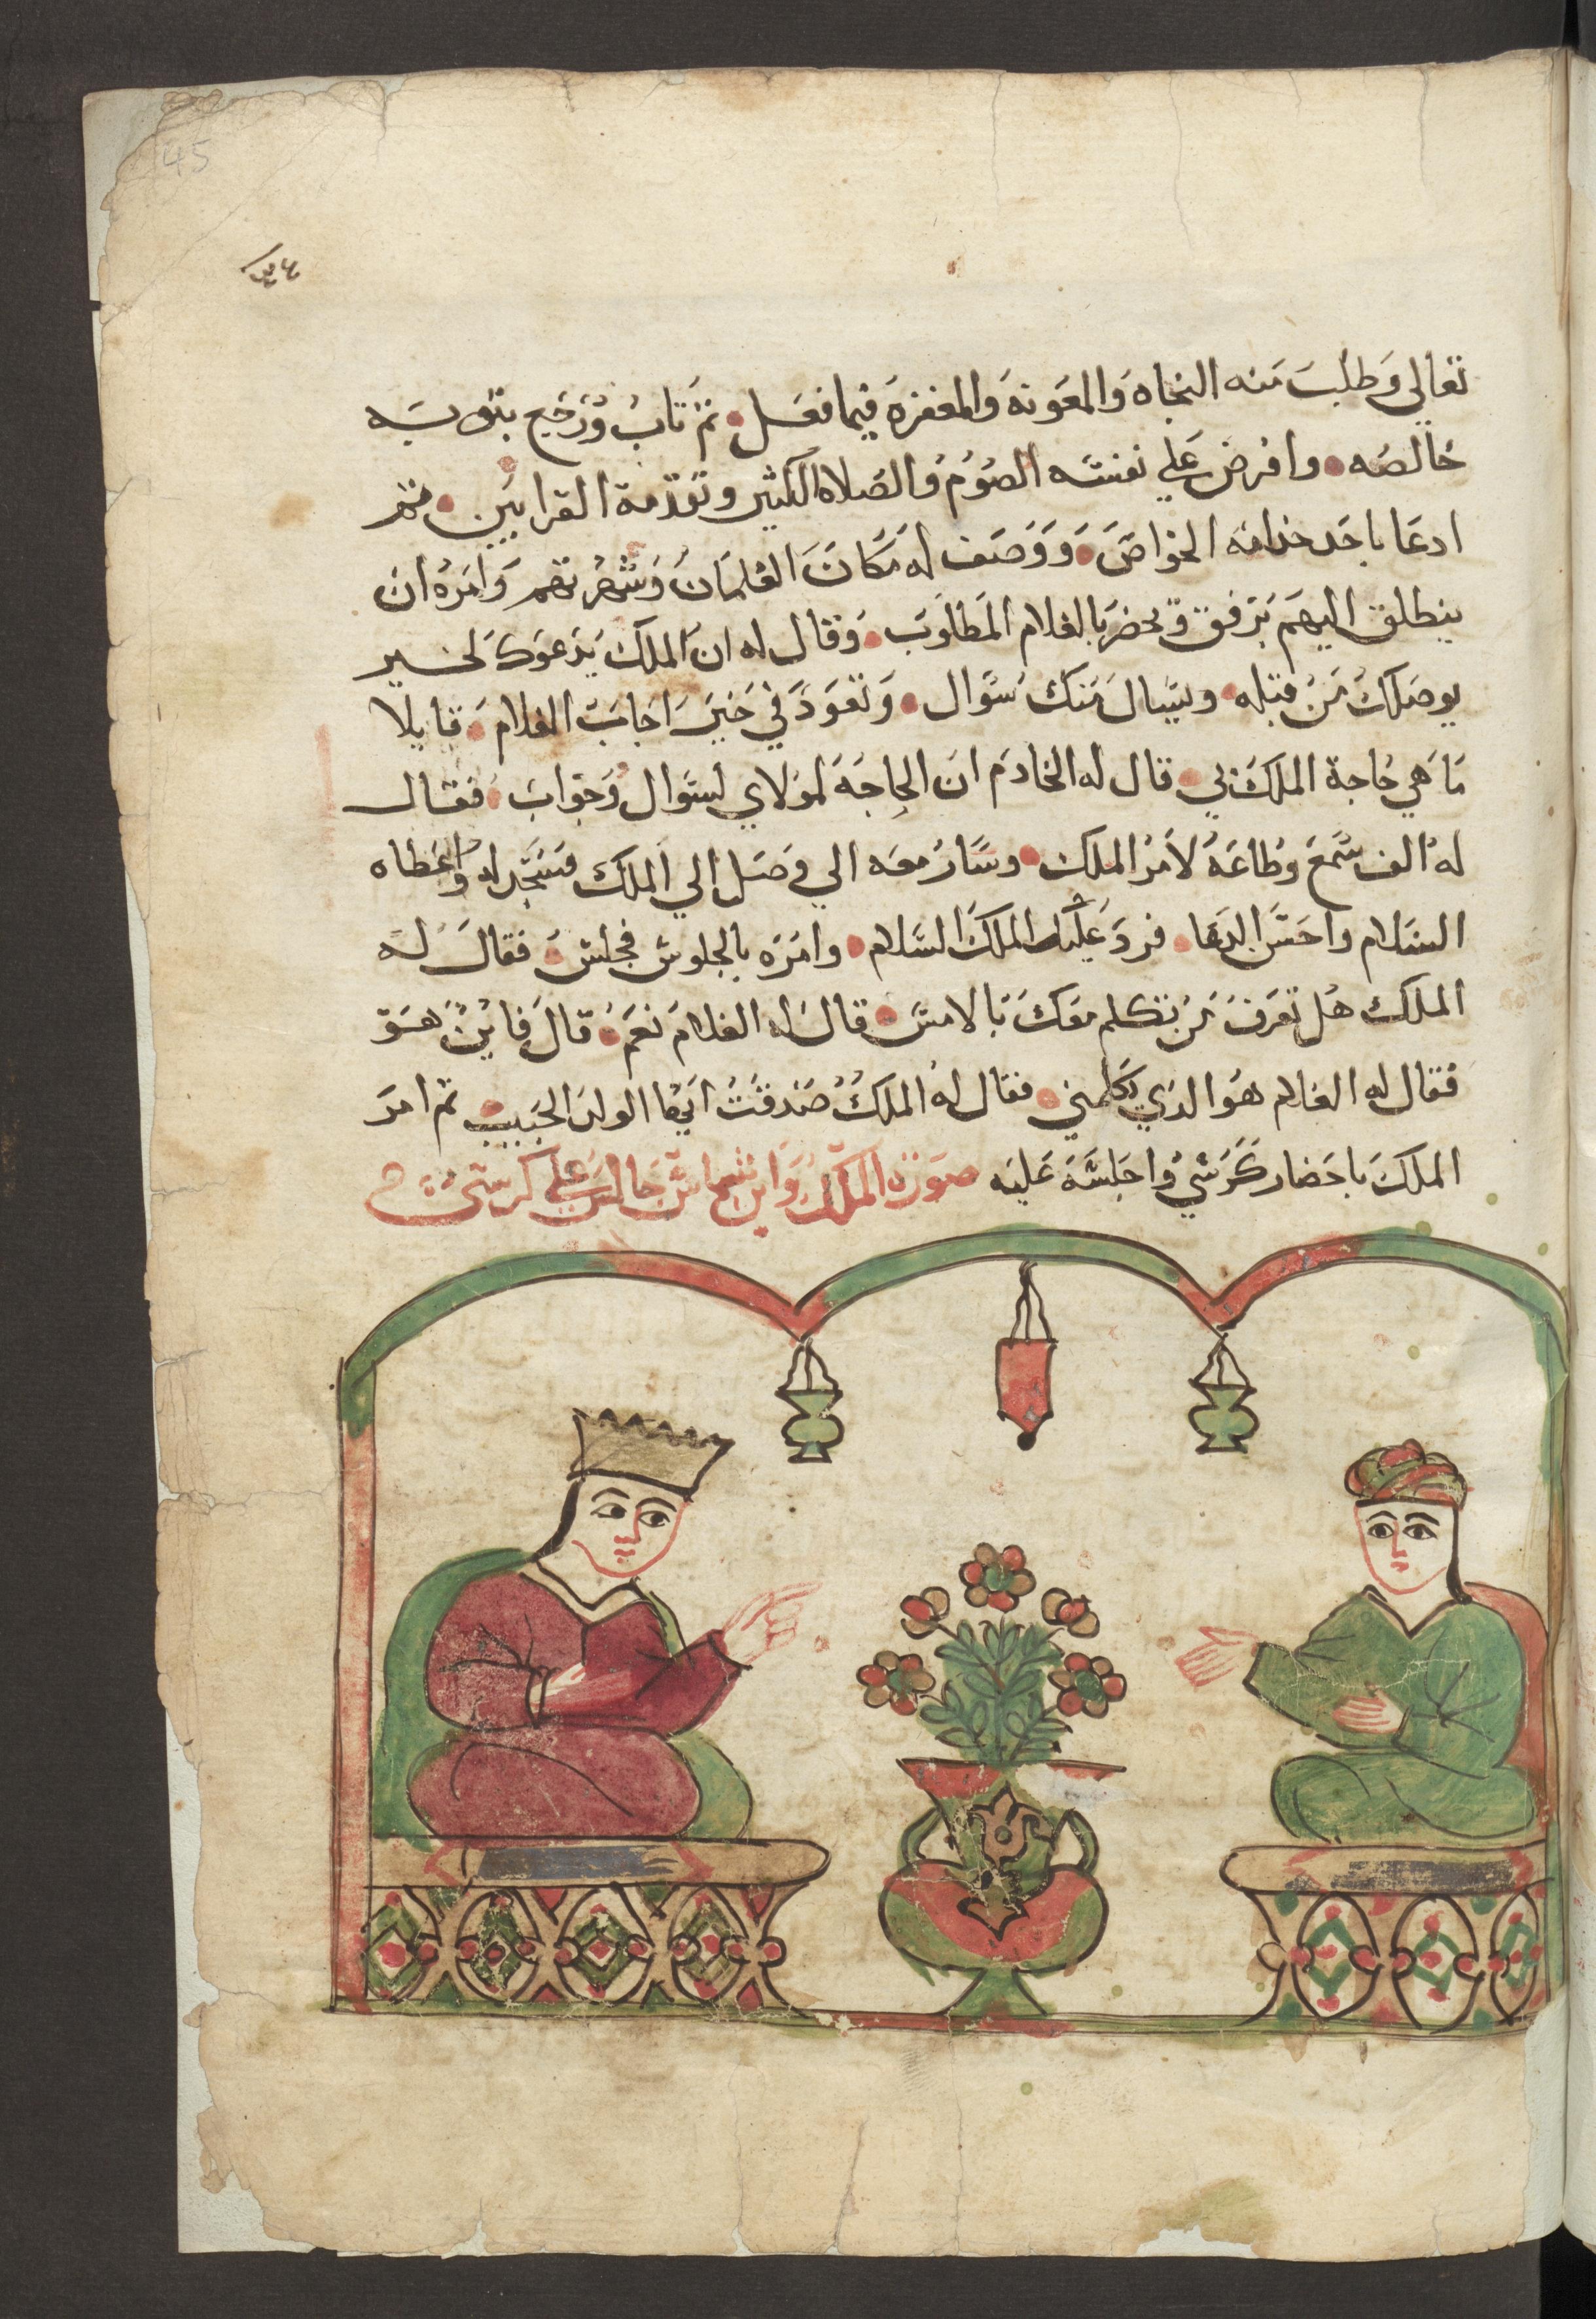 45
تعالي وطلب منه النجاه والمعونه والمغفره فيما فعل • ثم تاب ورجع بتوبه
خالصه • وافرض علي نفسه الصوم والصلاه الكثير وتقدمة القرابين • ثم
ادعا باحد خدامه الخواص • ووصف له مكان الغلمان وشهرتهم وامره ان
ينطلق اليهم برفق ويحضر بالغلام المطلوب • وقال له ان الملك يدعوك لخير
يوصلك من قبله • ويسال منك سوال • وتعود في حين اجاب الغلام • قايلا
ما هي حاجة الملك بي • قال له الخادم ان الحاجه لمولاي لسوال وجواب • فقال
له الف سمع وطاعه لامر الملك • وسار معه الي وصل الي الملك فسجد له واعطاه
السلام واحسن الدعا • فرد عليه الملك السلام • وامره بالجلوس فجلس • فقال له
الملك هل تعرف من تكلم معك بالامس • قال له الغلام نعم • قال فاين هو
فقال له الغلام هو الذي يكلمني • فقال له الملك صدقت ايها الولد الحبيب • ثم امر
الملك باحضار كرسي واجلسه عليه صورة الملك وابن شماس جالس علي كرسي